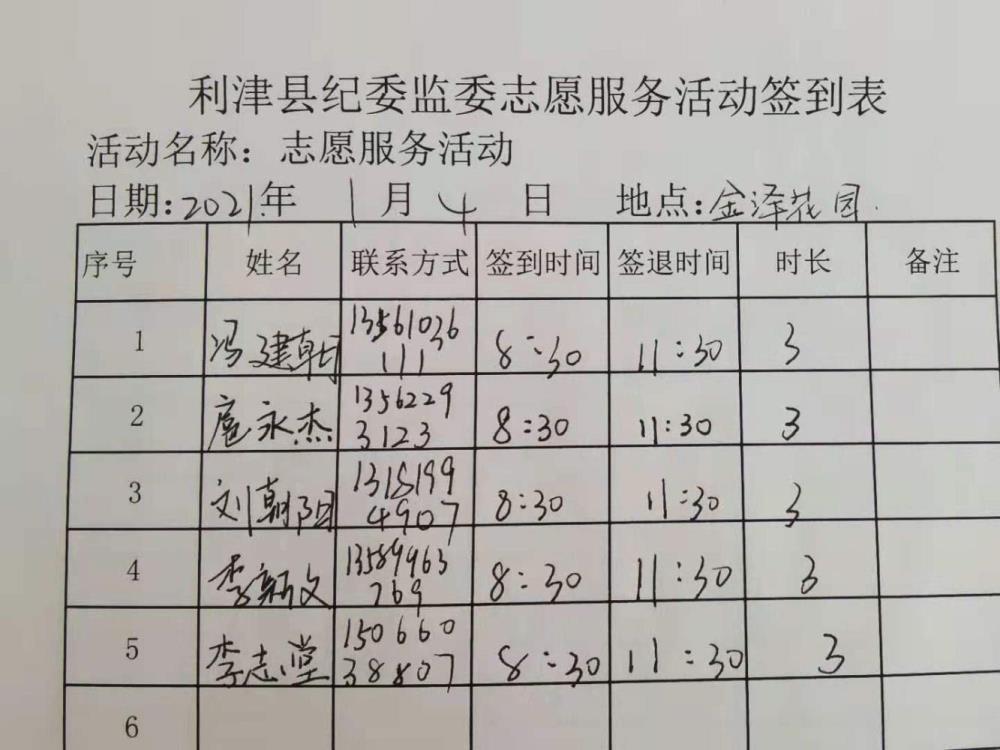 利津县纪委监委志愿服务活动签到表
活动名称：志愿服务活动
日期：2021年 1月 4 日 地点：金泽花园
序号 姓名 联系方式 签到时间 签退时间 时长 备注
1 冯建朝 13561036111 8:30 11:30 3
2 扈永杰 13562293123 8:30 11:30 3
3 刘朝阳 13181994907 8:30 11:30 3
4 李新文 13589963769 8:30 11:30 3
5 李志堂 15066038807 8:30 11:30 3
6